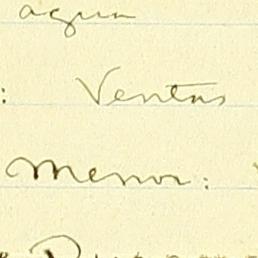 agua
: Ventas
Menor: